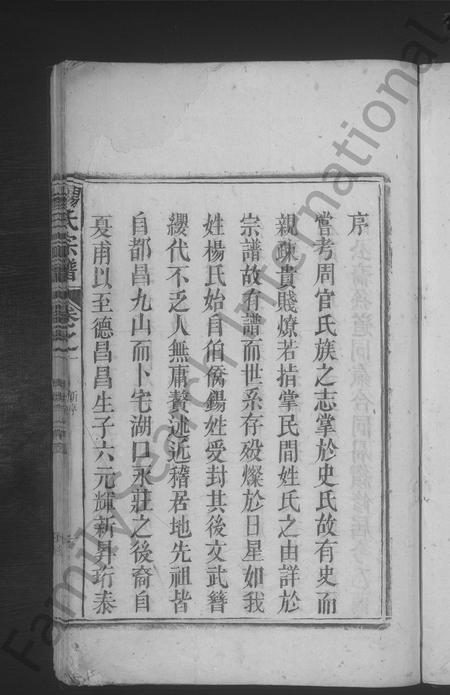 序
嘗考周官氏族之志掌於史氏故有史而
親疎貴賤燎若指掌民間姓氏之由詳於
宗譜故有譜而世系存歿燦於日星如我
姓楊氏始自伯僑鍚姓受封其後文武簪
纓代不乏人無庸贅述近稽居地先祖皆
自都昌九山而卜宅湖口永莊之後裔自
夏甫以至德昌昌生子六元輝新昇珩泰
楊氏宗譜 卷之一
FamilySearch International